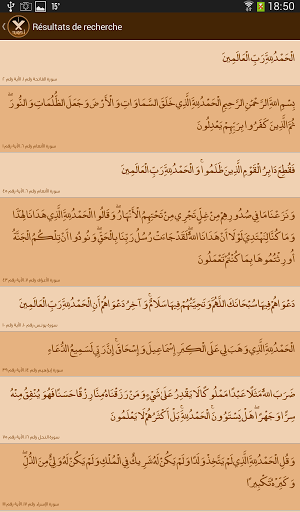 15°
18:50
Résultats de recherche
الْحَمْدُ لِلَّهِ رَبِّ الْعَالَمِينَ
سورة الفاتحة رقم ١ الآية رقم ٢
بِسْمِ اللَّهِ الرَّحْمَنِ الرَّحِيمِ الْحَمْدُ لِلَّهِ الَّذِي خَلَقَ السَّمَاوَاتِ وَالْأَرْضَ وَجَعَلَ الظُّلُمَاتِ وَالنُّورَ
ثُمَّ الَّذِينَ كَفَرُوا بِرَبِّهِمْ يَعْدِلُونَ
سورة الأنعام رقم ٦ الآية رقم ١
فَقُطِعَ دَابِرُ الْقَوْمِ الَّذِينَ ظَلَمُوا وَالْحَمْدُ لِلَّهِ رَبِّ الْعَالَمِينَ
سورة الأنعام رقم ٦ الآية رقم ٤٥
وَنَزَعْنَا مَا فِي صُدُورِهِمْ مِنْ غِلٍّ تَجْرِي مِنْ تَحْتِهِمُ الْأَنْهَارُ وَقَالُوا الْحَمْدُ لِلَّهِ الَّذِي هَدَانَا لِهَذَا
وَمَا كُنَّا لِنَهْتَدِيَ لَوْلَا أَنْ هَدَانَا اللَّهُ لَقَدْ جَاءَتْ رُسُلُ رَبِّنَا بِالْحَقِّ وَنُودُوا أَنْ تِلْكُمُ الْجَنَّةُ
أُورِثْتُمُوهَا بِمَا كُنْتُمْ تَعْمَلُونَ
سورة الأعراف رقم ٧ الآية رقم ٤٣
دَعْوَاهُمْ فِيهَا سُبْحَانَكَ اللَّهُمَّ وَتَحِيَّتُهُمْ فِيهَا سَلَامٌ وَآخِرُ دَعْوَاهُمْ أَنِ الْحَمْدُ لِلَّهِ رَبِّ الْعَالَمِينَ
سورة يونس رقم ١٠ الآية رقم ١٠
الْحَمْدُ لِلَّهِ الَّذِي وَهَبَ لِي عَلَى الْكِبَرِ إِسْمَاعِيلَ وَإِسْحَاقَ إِنَّ رَبِّي لَسَمِيعُ الدُّعَاءِ
سورة إبراهيم رقم ١٤ الآية رقم ٣٩
ضَرَبَ اللَّهُ مَثَلًا عَبْدًا مَمْلُوكًا لَا يَقْدِرُ عَلَى شَيْءٍ وَمَنْ رَزَقْنَاهُ مِنَّا رِزْقًا حَسَنًا فَهُوَ يُنْفِقُ مِنْهُ
سِرًّا وَجَهْرًا هَلْ يَسْتَوُونَ الْحَمْدُ لِلَّهِ بَلْ أَكْثَرُهُمْ لَا يَعْلَمُونَ
سورة النحل رقم ١٦ الآية رقم ٧٥
وَقُلِ الْحَمْدُ لِلَّهِ الَّذِي لَمْ يَتَّخِذْ وَلَدًا وَلَمْ يَكُنْ لَهُ شَرِيكٌ فِي الْمُلْكِ وَلَمْ يَكُنْ لَهُ وَلِيٌّ مِنَ الذُّلِّ
وَكَبِّرْهُ تَكْبِيرًا
سورة الإسراء رقم ١٧ الآية رقم ١١١